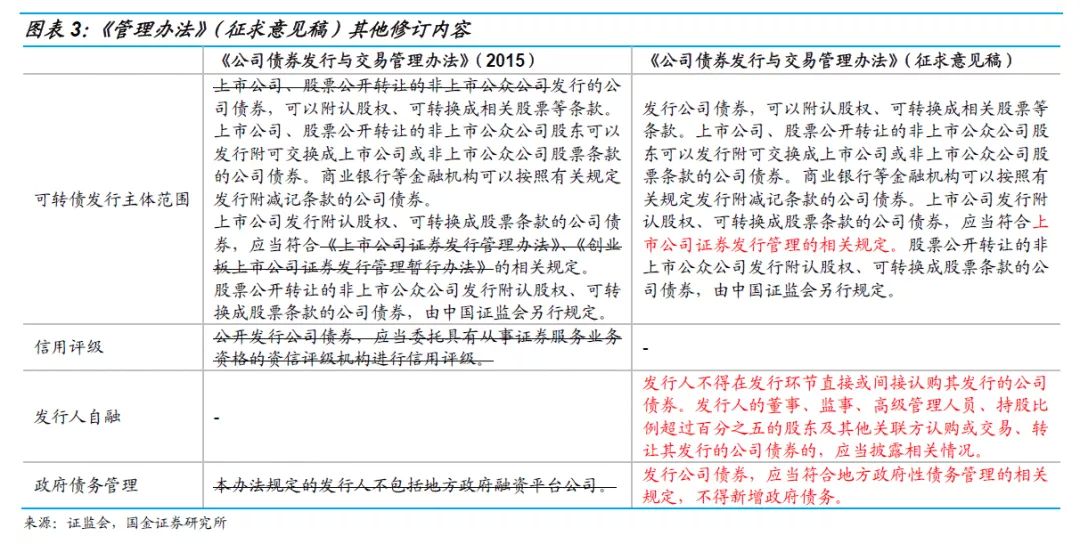 图表 3：《管理办法》（征求意见稿）其他修订内容
《公司债券发行与交易管理办法》（2015）
《公司债券发行与交易管理办法》（征求意见稿）
可转债发行主体范围
上市公司、股票公开转让的非上市公众公司发行的公
司债券，可以附认股权、可转换成相关股票等条款。
上市公司、股票公开转让的非上市公众公司股东可以
发行附可交换成上市公司或非上市公众公司股票条款
的公司债券。商业银行等金融机构可以按照有关规定
发行附减记条款的公司债券。
上市公司发行附认股权、可转换成股票条款的公司债
券，应当符合《上市公司证券发行管理办法》、《创业
板上市公司证券发行管理暂行办法》的相关规定。
股票公开转让的非上市公众公司发行附认股权、可转
换成股票条款的公司债券，由中国证监会另行规定。
发行公司债券，可以附认股权、可转换成相关股票等
条款。上市公司、股票公开转让的非上市公众公司股
东可以发行附可交换成上市公司或非上市公众公司股
票条款的公司债券。商业银行等金融机构可以按照有
关规定发行附减记条款的公司债券。上市公司发行附
认股权、可转换成股票条款的公司债券，应当符合上
市公司证券发行管理的相关规定。股票公开转让的非
上市公众公司发行附认股权、可转换成股票条款的公
司债券，由中国证监会另行规定。
信用评级
公开发行公司债券，应当委托具有从事证券服务业务
资格的资信评级机构进行信用评级。
-
发行人自融
-
发行人不得在发行环节直接或间接认购其发行的公司
债券。发行人的董事、监事、高级管理人员、持股比
例超过百分之五的股东及其他关联方认购或交易、转
让其发行的公司债券的，应当披露相关情况。
政府债务管理
本办法规定的发行人不包括地方政府融资平台公司。
发行公司债券，应当符合地方政府性债务管理的相关
规定，不得新增政府债务。
来源：证监会，国金证券研究所